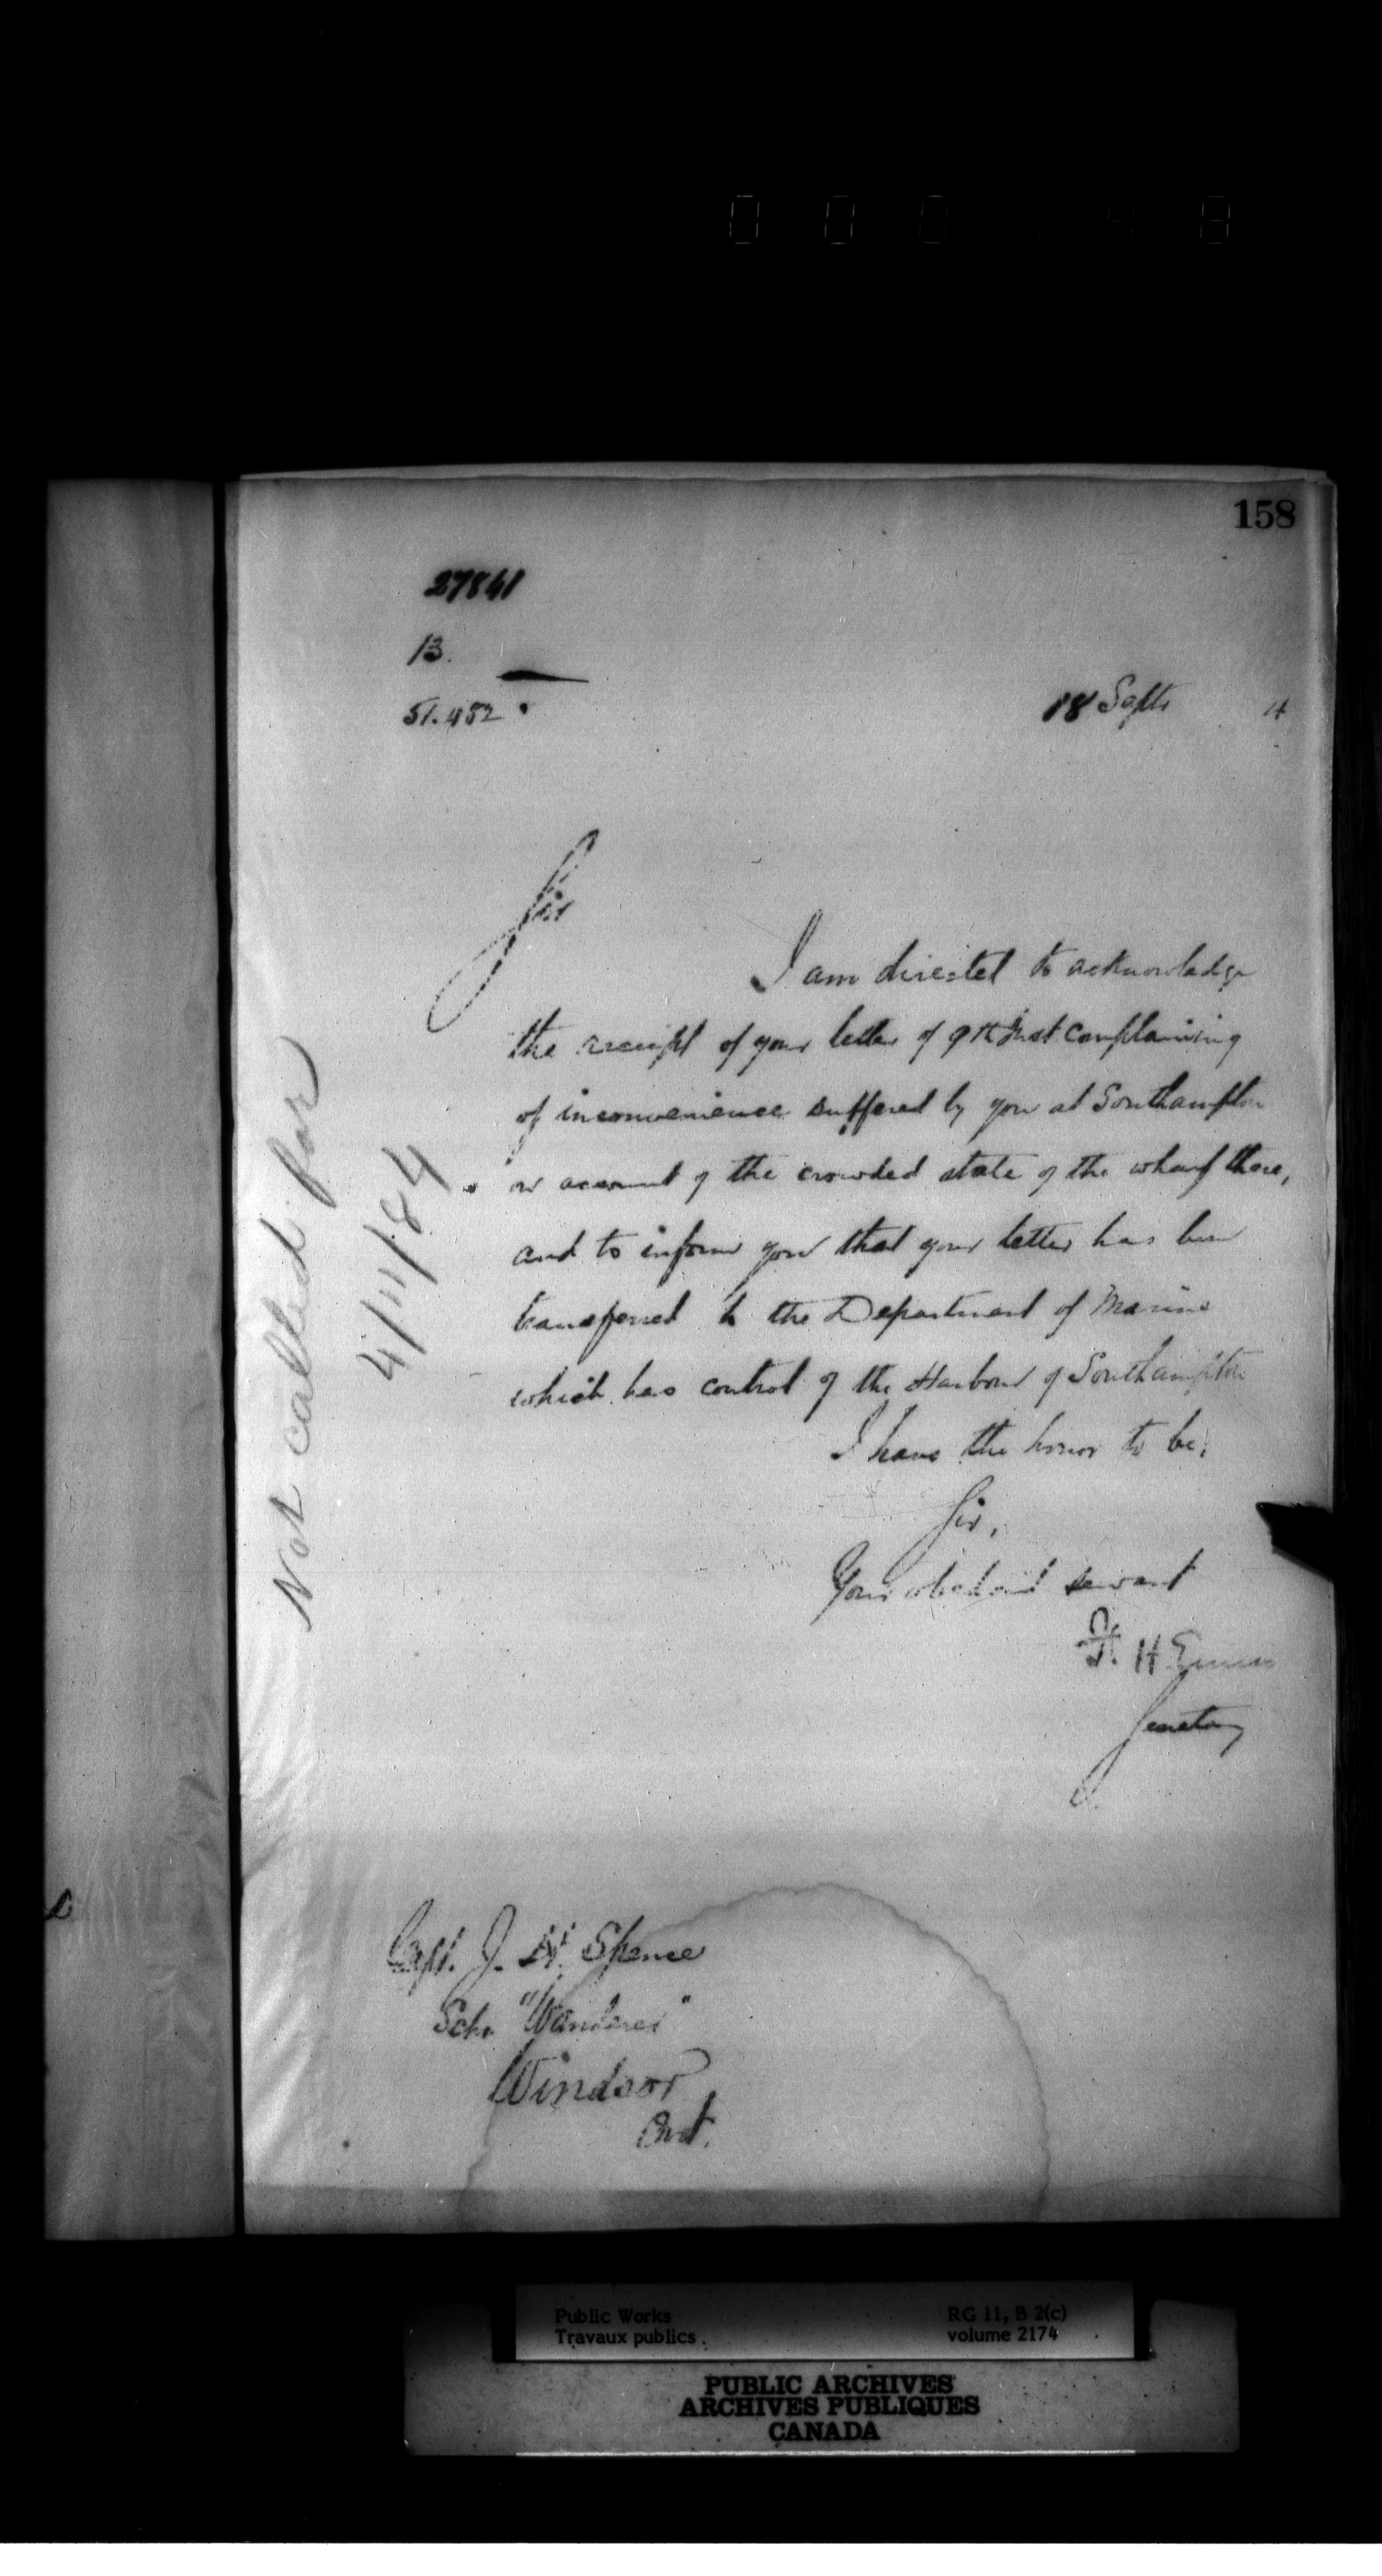 158
27841
B.
51.452
18 Septr 4
Sir
I am directed to acknowledge
the receipt of your letter of 9th Inst complaining
of inconvenience suffered by you at Southampton
on account of the crowded state of the wharf there,
and to inform you that your letter has been
transferred to the Department of Marine
which has control of the Harbour of Southampton
I have the honor to be,
Sir,
Your obedient servant
F. H. Ennis
Secretary
Not called for
4/11/84
Capt. J. Spence
Schr "Wanderer"
Windsor
Ont.
Public Works
Travaux publics
RG 11, B 2(c)
volume 2174
PUBLIC ARCHIVES
ARCHIVES PUBLIQUES
CANADA